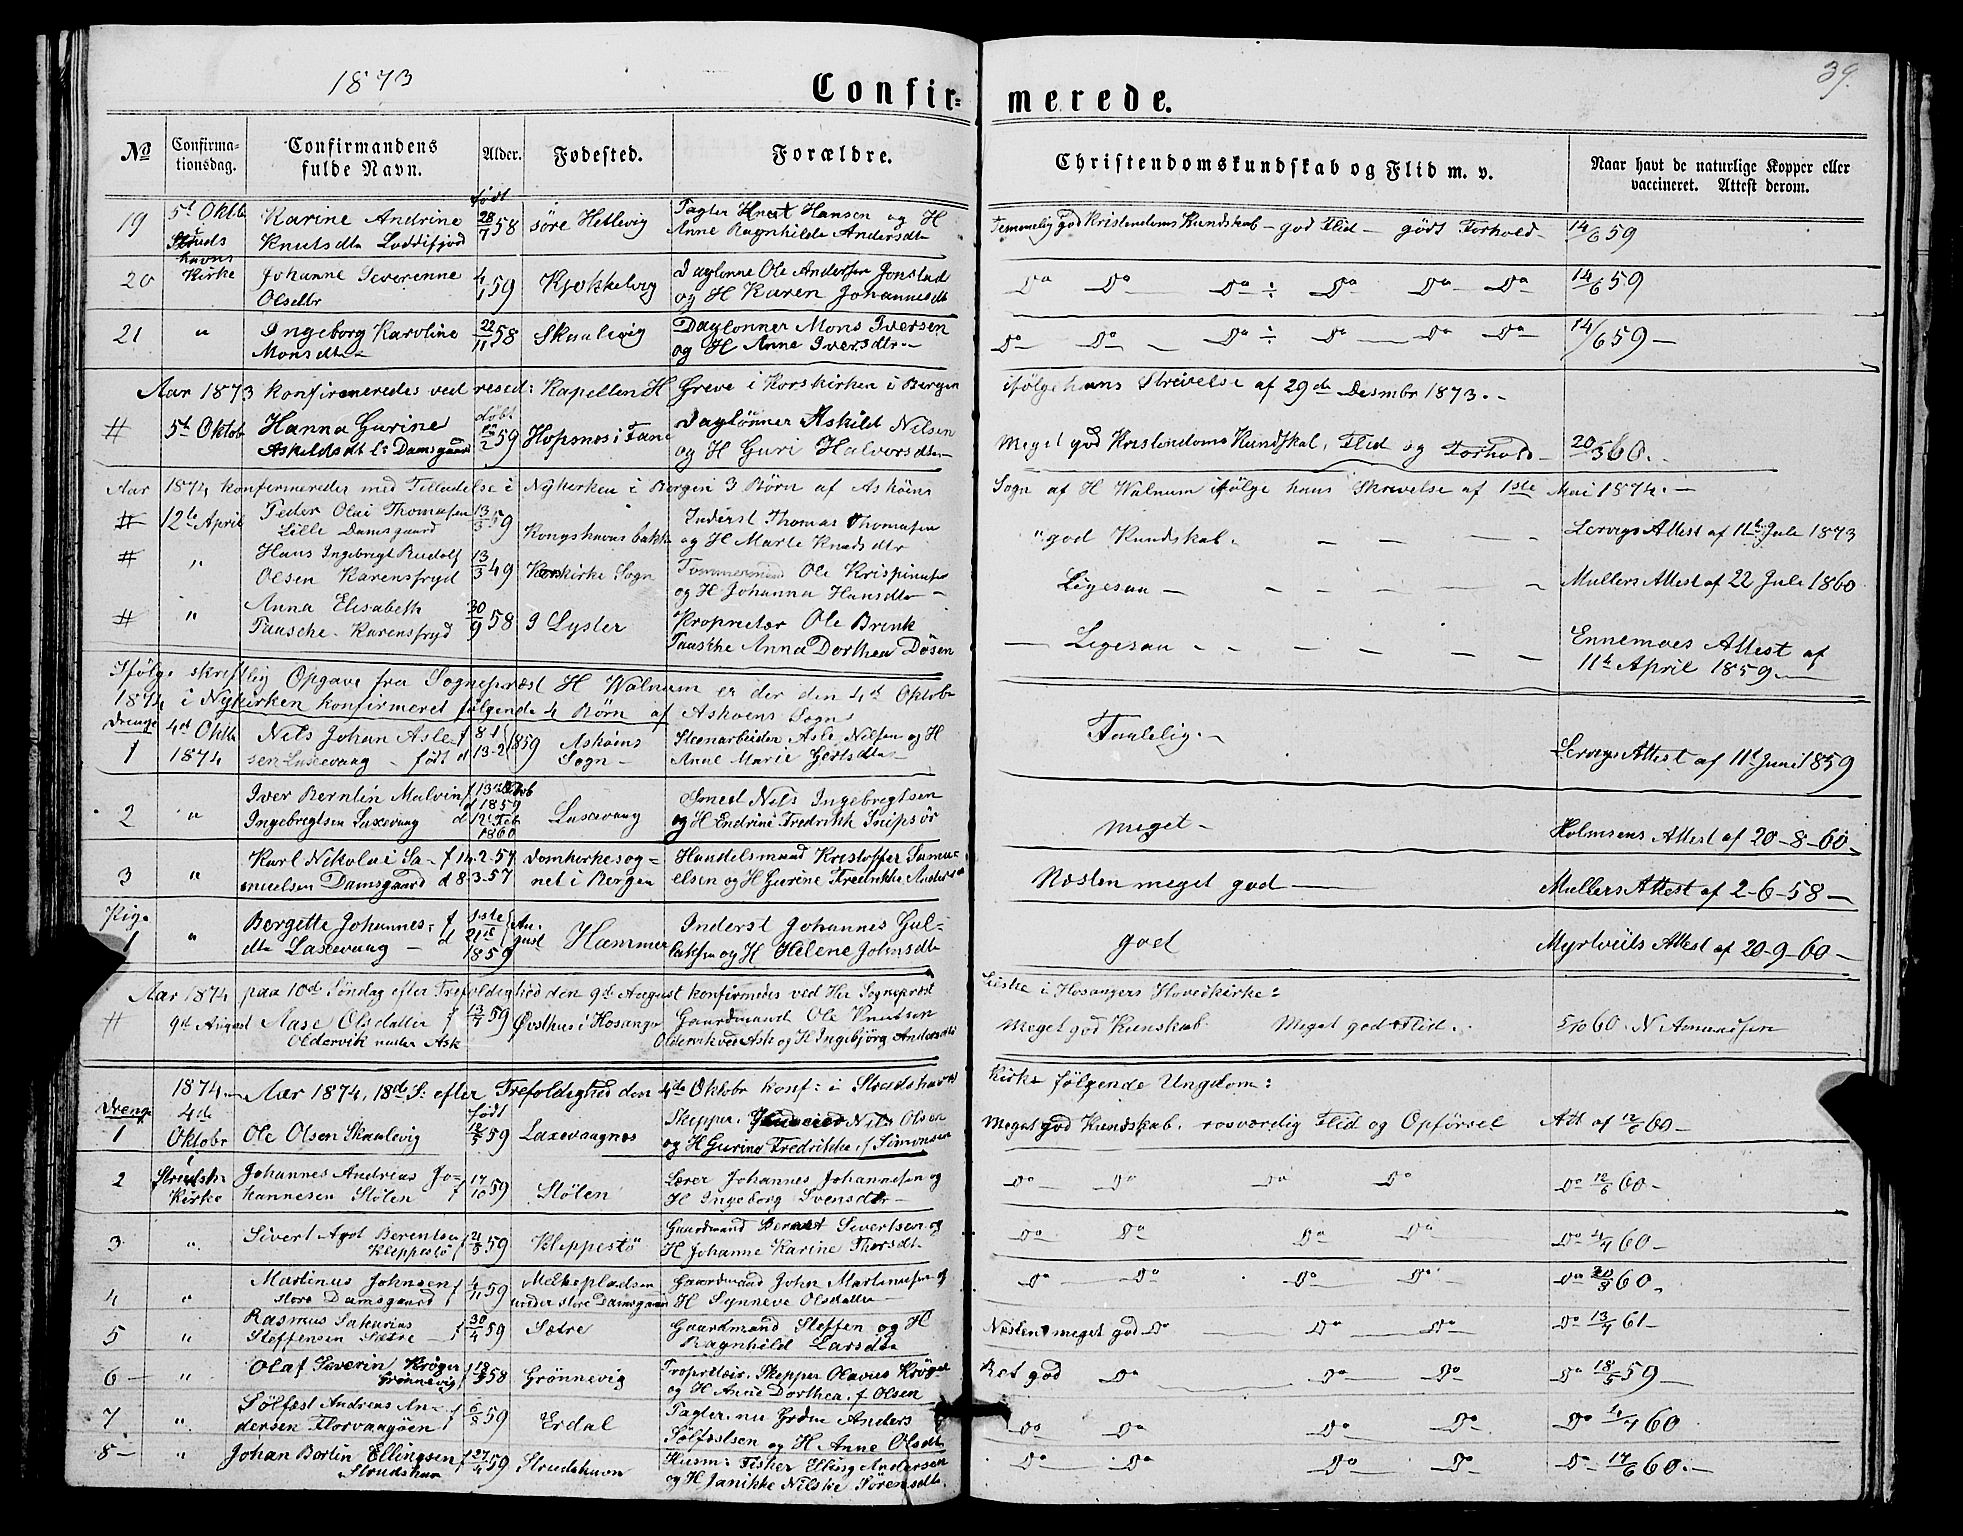 1873
39.
Confir=
merede.
No
Confirma-
tionsdag.
Confirmandens
fulde Navn.
Alder.
Fødested.
Forældre.
Christendomskundskab og Flid m. v.
Naar havt de naturlige Kopper eller
vaccineret. Attest derom.
født
19 5t Oktb Karine Andrine 28/7 58 søre Hetlevig Tagter Knut Hansen og H Temmelig god Kristendoms Kundskab - god Flid - godt Forhold - 14/6 59
Knutsdtr Loddefjord Anne Ragnhilde Andersdtr
havns
20 Kirke Johanne Severenne 4/1 59 Kjøkkelvig Daglonne Ole Andersen Jonstad Do Do Do ÷ Do Do Do 14/6 59
Olsdtr og H Karen Johannesdtr
21 " Ingeborg Karoline 22/11 58 Skaalevig Daglonner Mons Iversen Do Do Do ÷ Do Do Do 14/6 59
Monsdtr og H Anne Iversdtr
Aar 1873 konfirmeredes ved resed: Kapellan H Greve i Korskirken i Bergen ifølge hans Skrivelse af 29de Desmbr 1873.
døbt
# 5t Oktob Hanna Gurine /2 59 Hopsnes i Fane Daglönner Askild Nilsen Meget god Kristendoms Kundskab, Flid og Forhold 20/5 60.
Askildsdtr l: Damsgaard og H Guri Halvorsdtr
Aar 1874 konfirmeredes med Tilladelse i Nykirken i Bergen 3 Børn af Askøens Sogn af H Walnum ifølge hans Skrivelse af 1ste Mai 1874.
# 12te April Peder Olai Thomasen 13/3 59 Kongshavns bakke Inderst Thomas Thomasen " god Kundskab. Lervigs Attest af 11te Jule 1873
Lille Damsgaard og H Marte Knudsdtr
# " Hans Ingebregt Rudolf 13/3 49 Korskirke Sogn Tommermand Ole Krispinusen Ligesaa Mullers Attest af 22 Jule 1860
Olsen Karensfryd og H Johanna Hansdtr
# " Anna Elisabeth 30/9 58 I Lyster Proprietær Ole Brink Ligesaa Ennemoes Attest af
Taasche Karensfryd Taaskhe Anna Dorthea Dösen 11te April 1859
Ifølge skriftlig Opgave fra Sogneprest H Walnum er der den 4de Oktobr
1874 i Nykirken konfirmeret følgende 4 Børn af Askøens Sogn
Drenge 4de Oktb Nils Johan Asle- f 8-1 1859 Askøens Steenarbeider Asle Nilsen og H Taalelig. Lervigs Attest af 11te Juni 1859
1 1874 sen Laxevaag - født d 13-2 Sogn Anne Marie Gertsdtr
2 " Iver Berntin Malvin f 13de Laxevaag Smed Nils Ingebregtsen meget Holmsens Attest af 20-8-60
d 1859
Ingebregtsen Laxevaag d 12te Feb og H Endrine Fredrikk Snipsör
1860
3 " Karl Nikolai Sa- f 14-2-57 Domkirkesog= Handelsmand Kristoffer Samu= Næsten meget god Mullers Attest af 2-6-58
muelsen Damsgaard d 8-3-57 net i Bergen elsen og H Gurine Fredrikke Anders
Pige 1ste
1 " Bergette Johannes: f Au- Hammer Inderst Johannes Gul= god Myrtveits Attest af 20-9-60
dtr Laxevaag d 21de gust laksen og H Helene Johnsdtr
1859
Aar 1874 paa 10de Søndag efter Trefoldighed den 9de August konfirmedes ved Hr Sogneprest Liske i Hosangers Hovedkirke:
# 9de August Aase Olsdatter f 13/7 59 Øvsthus i Hosanger Gaardmand Ole Knutsen Meget god Kunskab. Meget god Flid. 5/10 60. N Amundsen
Oldervik under Ask Oldervik ved Ask og H Ingebjörg Andersdtr
1874. Aar 1874, 18de S: efter Trefoldighed den 4de Oktobr konf: i Strudshavns Kirke følgende Ungdom:
Drenge 4de født
1 Oktobr Ole Olsen Skaalevig 12/5 59 Laxevaagnes Skipper, Nils Olsen Meget god Kundskab. rosværdig Flid og Opførsel Att af 12/6 60
og H Gurine Fredrikke f Simonsen
2 Strudsh: Johannes Andreas Jo= f 17/10 59 Stölen Lærer Johannes Johannesen og Do Do Do Do Do 12/6 60
Kirke hannesen Stölen H Ingeborg Svensdtr
3 " Sivert Agot Berentsen f 21/5 59 Kleppestö Gaardmand Bernt Sivertsen og Do Do Do Do Do 4/4 60
Kleppestö H Johanne Karine Thorsdtr
4 " Martinus Johnsen f 4/11 59 Melkepladsen Gaardmand John Martinusen og Do Do Do Do Do 20/3 60
store Damsgaard under store Damsgaard H Synneve Olsdatter
5 " Rasmus Sakarias f 30/4 59 Sætre Gaardmand Steffen og H Næsten meget god Do Do Do Do 13/4 61
Steffensen Sætre Ragnhild Larsdtr
6 " Olaf Severin Kröger f 18/3 58 Grönnevig Propretær. Skipper Olavus Kröger Ret god Do Do Do Do 18/5 59
Grönnevig og H Anne Dorthea f Olsen
7 " Sølfæst Andreas An- f 6/8 59 Erdal Tagter nu Grdm Anders Do Do Do Do Do 4/4 60
dersen Florvaagöen Sølfæstsen og H Anne Olsdtr
8 " Johan Bertin Ellingsen f 27/4 59 Strudshavn Husm: Fisker Elling Andersen Do Do Do Do Do 17/6 60.
Strudshav og H Janikke Nilske Sörensdtr.